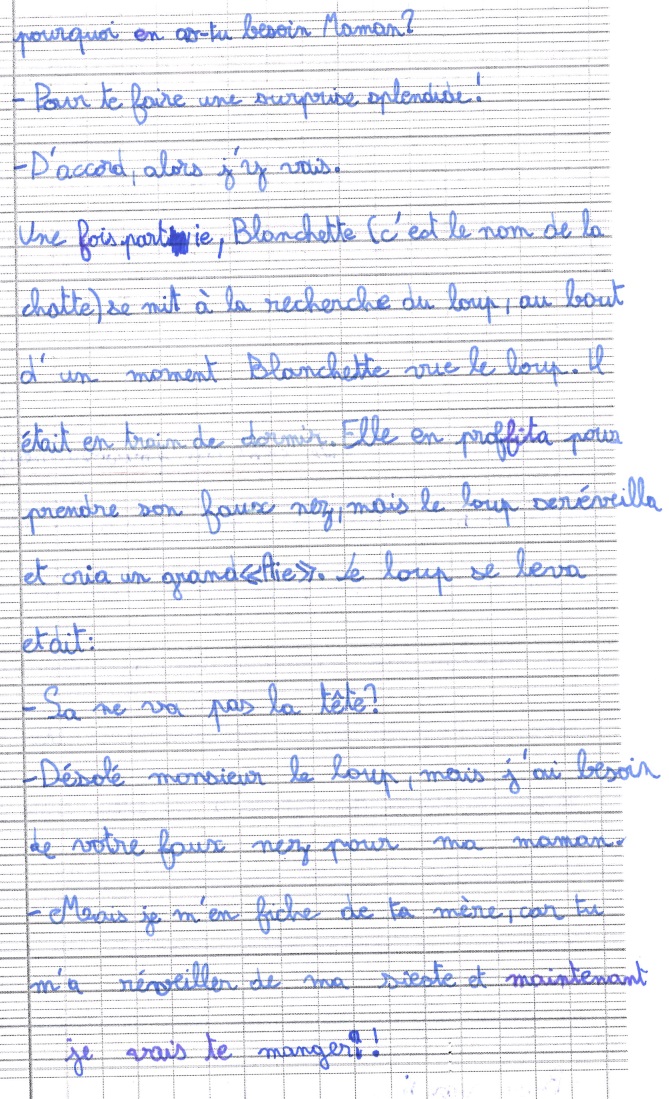 pourquoi en as-tu besoin Maman?
- Pour te faire une surprise splendide!
- D'accord, alors j'y vais.
Une fois partie, Blanchette (c'est le nom de la
chatte) se mit à la recherche du loup, au bout
d'un moment Blanchette vue le loup. Il
était en train de dormir. Elle en proffita pour
prendre son faux nez, mais le loup seréveilla
et cria un grand «Aie». Le loup se leva
et dit:
- Sa ne va pas la tête?
- Désolé monsieur le loup, mais j'ai besoin
de votre faux nez pour ma maman.
- Mais je m'en fiche de ta mère, car tu
m'a réveiller de ma sieste et maintenant
je vais te manger!!